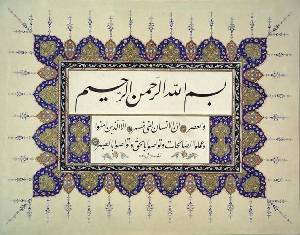 بسم الله الرحمن الرحیم
والعصر ان الانسان لفی خسر الا الذین امنوا
وعملوا الصالحات وتواصوا بالحق وتواصوا بالصبر